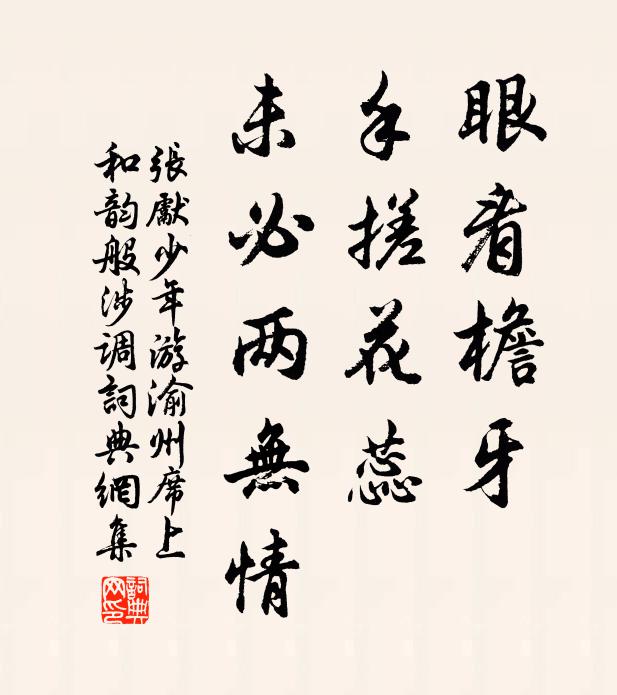 眼看檐牙
手搓花蕊
未必两無情
張獻少年游渝州席上
和韵般涉调詞典網集
詞典网印